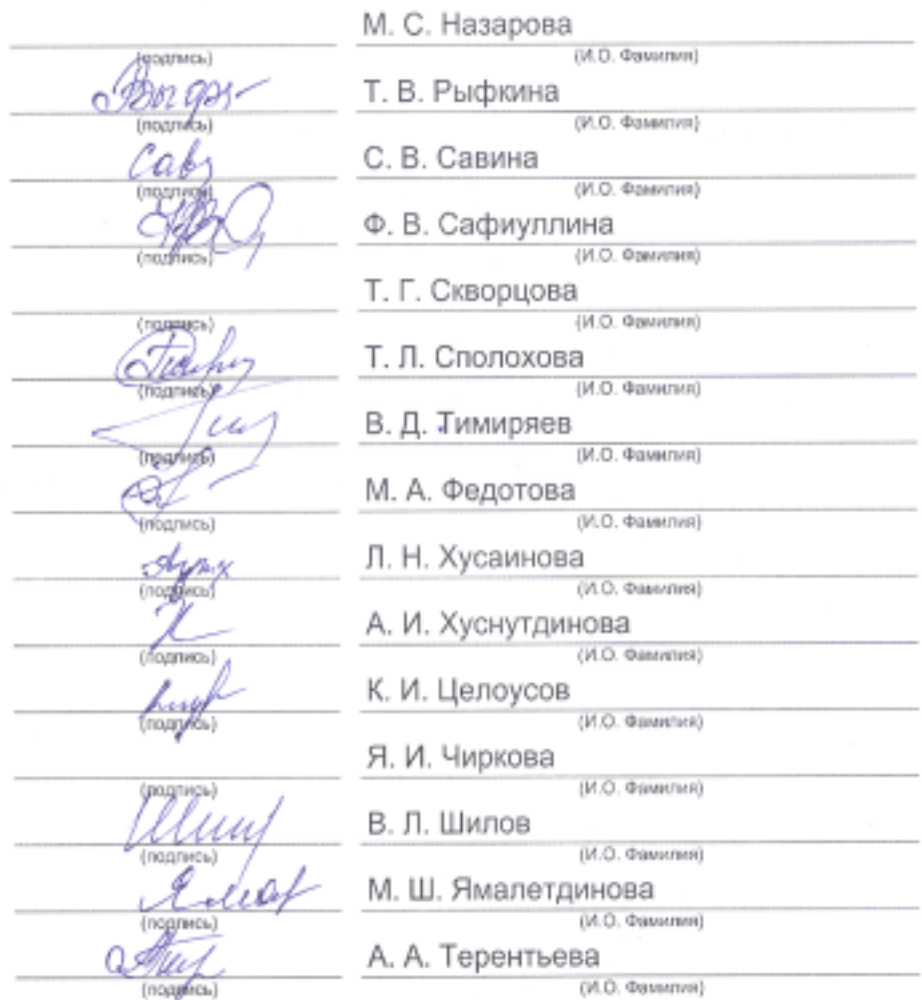 М. С. Назарова
(подпись) (И.О. Фамилия)
Т. В. Рыфкина
(подпись) (И.О. Фамилия)
С. В. Савина
(подпись) (И.О. Фамилия)
Ф. В. Сафиуллина
(подпись) (И.О. Фамилия)
Т. Г. Скворцова
(подпись) (И.О. Фамилия)
Т. Л. Сполохова
(подпись) (И.О. Фамилия)
В. Д. Тимиряев
(подпись) (И.О. Фамилия)
М. А. Федотова
(подпись) (И.О. Фамилия)
Л. Н. Хусаинова
(подпись) (И.О. Фамилия)
А. И. Хуснутдинова
(подпись) (И.О. Фамилия)
К. И. Целоусов
(подпись) (И.О. Фамилия)
Я. И. Чиркова
(подпись) (И.О. Фамилия)
В. Л. Шилов
(подпись) (И.О. Фамилия)
М. Ш. Ямалетдинова
(подпись) (И.О. Фамилия)
А. А. Терентьева
(подпись) (И.О. Фамилия)